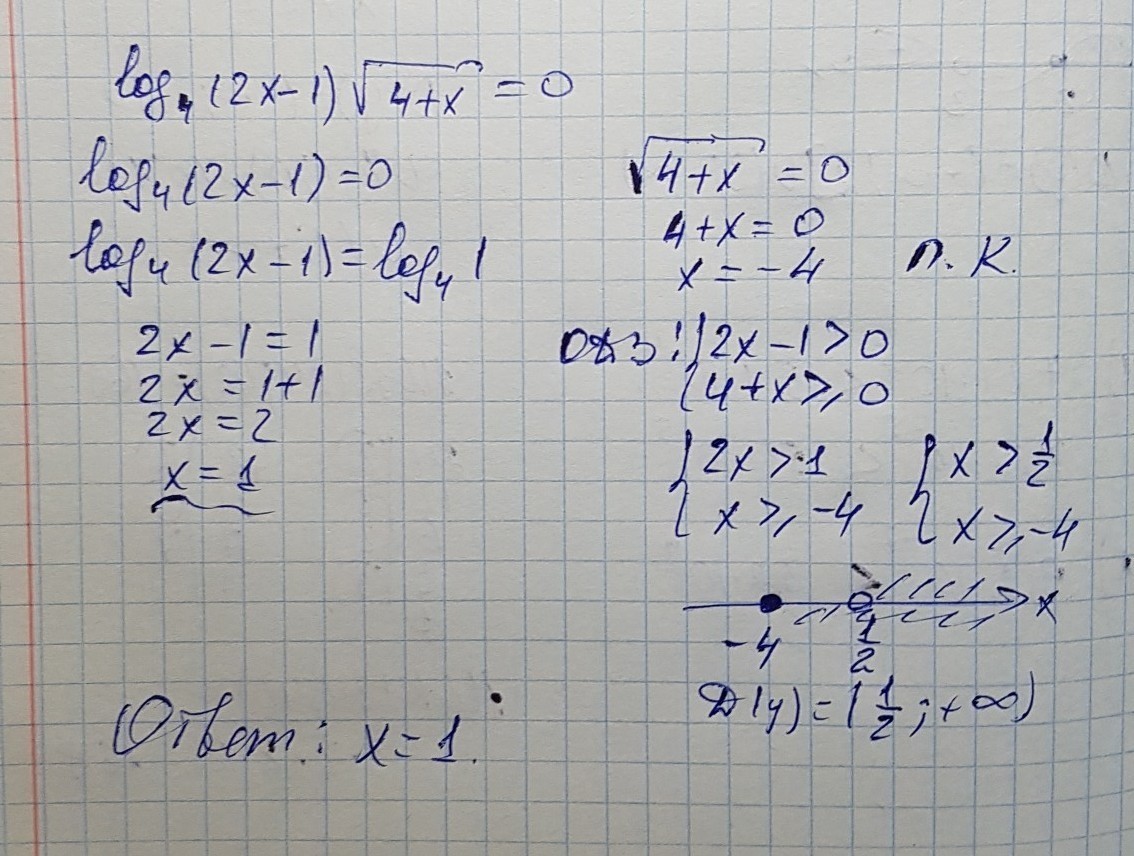 log₄(2x-1)√(4+x) = 0
log₄(2x-1)=0
log₄(2x-1)=log₄1
2x-1=1
2x=1+1
2x=2
x=1
√(4+x) = 0
4+x=0
x=-4 п.к.
ОДЗ: {2x-1>0
{4+x≥0
{2x>1 {x>1/2
{x≥-4 {x≥-4
-4 1/2 x
D(y)=(1/2;+∞)
Ответ: x=1.